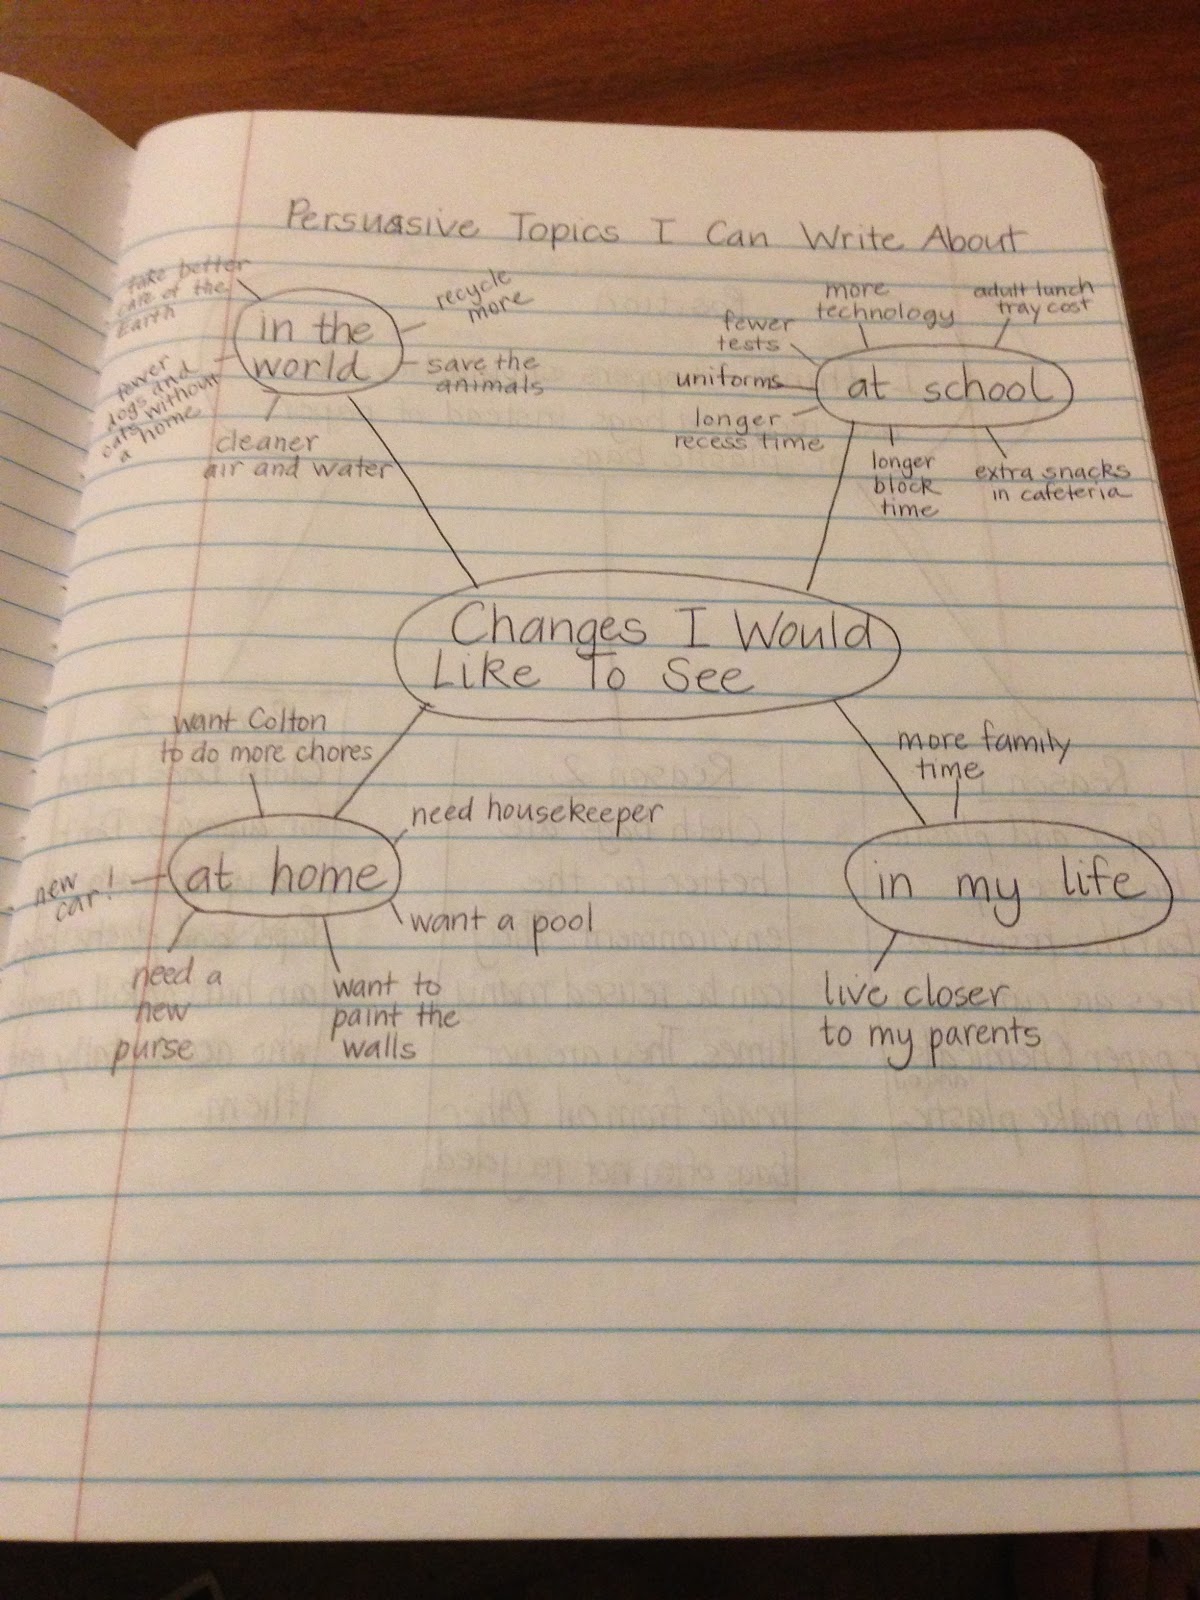 Persuasive Topics I Can Write About
take better
care of the
Earth
in the
world
recycle
more
save the
animals
fewer
dogs and
cats without
a home
cleaner
air and water
more
technology
adult lunch
tray cost
fewer
tests
uniforms
at school
longer
recess time
longer
block
time
extra snacks
in cafeteria
Changes I Would
Like To See
want Colton
to do more chores
need housekeeper
at home
new
car!
want a pool
need a
new
purse
want to
paint the
walls
more family
time
in my life
live closer
to my parents